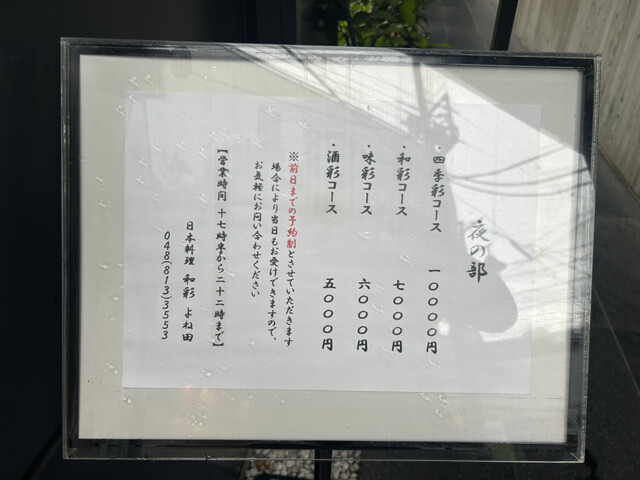 夜の部
・四季彩コース 一〇〇〇〇円
・和彩コース 七〇〇〇円
・味彩コース 六〇〇〇円
・酒彩コース 五〇〇〇円
※前日までの予約制とさせていただきます
場合により当日もお受けできますので、
お気軽にお問い合わせください
【営業時間 十七時半から二十二時まで】
日本料理 和彩 よね田
048(813)3553